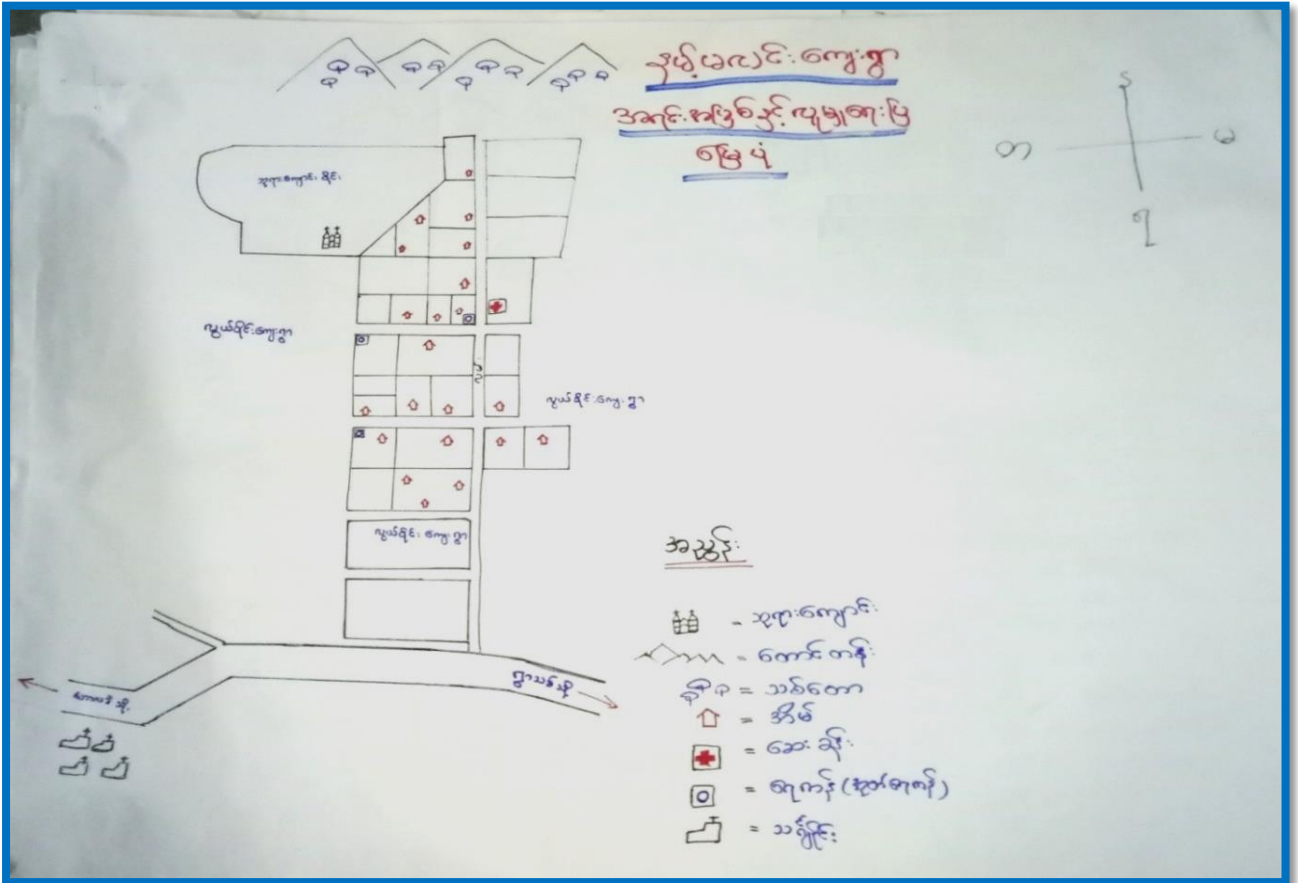 နမ့်မလင်းကျေးရွာ
အရင်းအမြစ်နှင့်လူမှုရေးပြ
မြေပုံ
န
တ
မ
ရ
ဘုရားကျောင်းဝိုင်း
လွယ်ခိုင်ကျေးရွာ
လွယ်ခိုင်ကျေးရွာ
လွယ်ခိုင်ကျေးရွာ
ရွာသစ်သို့
အညွှန်း
- ဘုရားကျောင်း
= တောင်တန်း
= သစ်တော
= အိမ်
= ဆေးခန်း
= ရေကန် (အုတ်ရေကန်)
= သင်္ချိုင်း